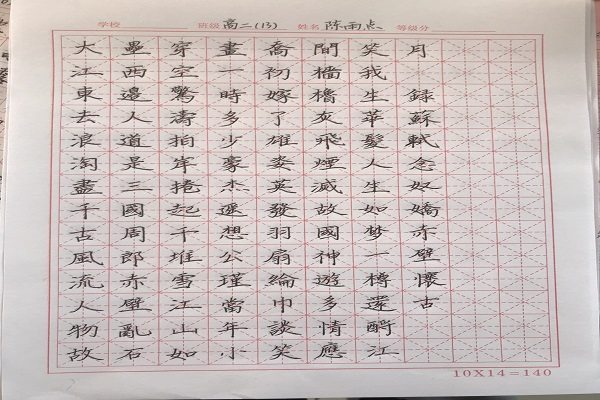 学校 班级 高二(13) 姓名 陈雨点 等级分
大江東去浪淘盡千古風流人物故
壘西邊人道是三國周郎赤壁亂石
穿空驚濤拍岸捲起千堆雪江山如
畫一時多少豪杰遥想公瑾當年小
喬初嫁了雄姿英發羽扇綸巾談笑
間檣櫓灰飛煙滅故國神遊多情應
笑我生華髮人生如梦一樽還酹江
月 録蘇軾念奴嬌赤壁懷古
10X14=140